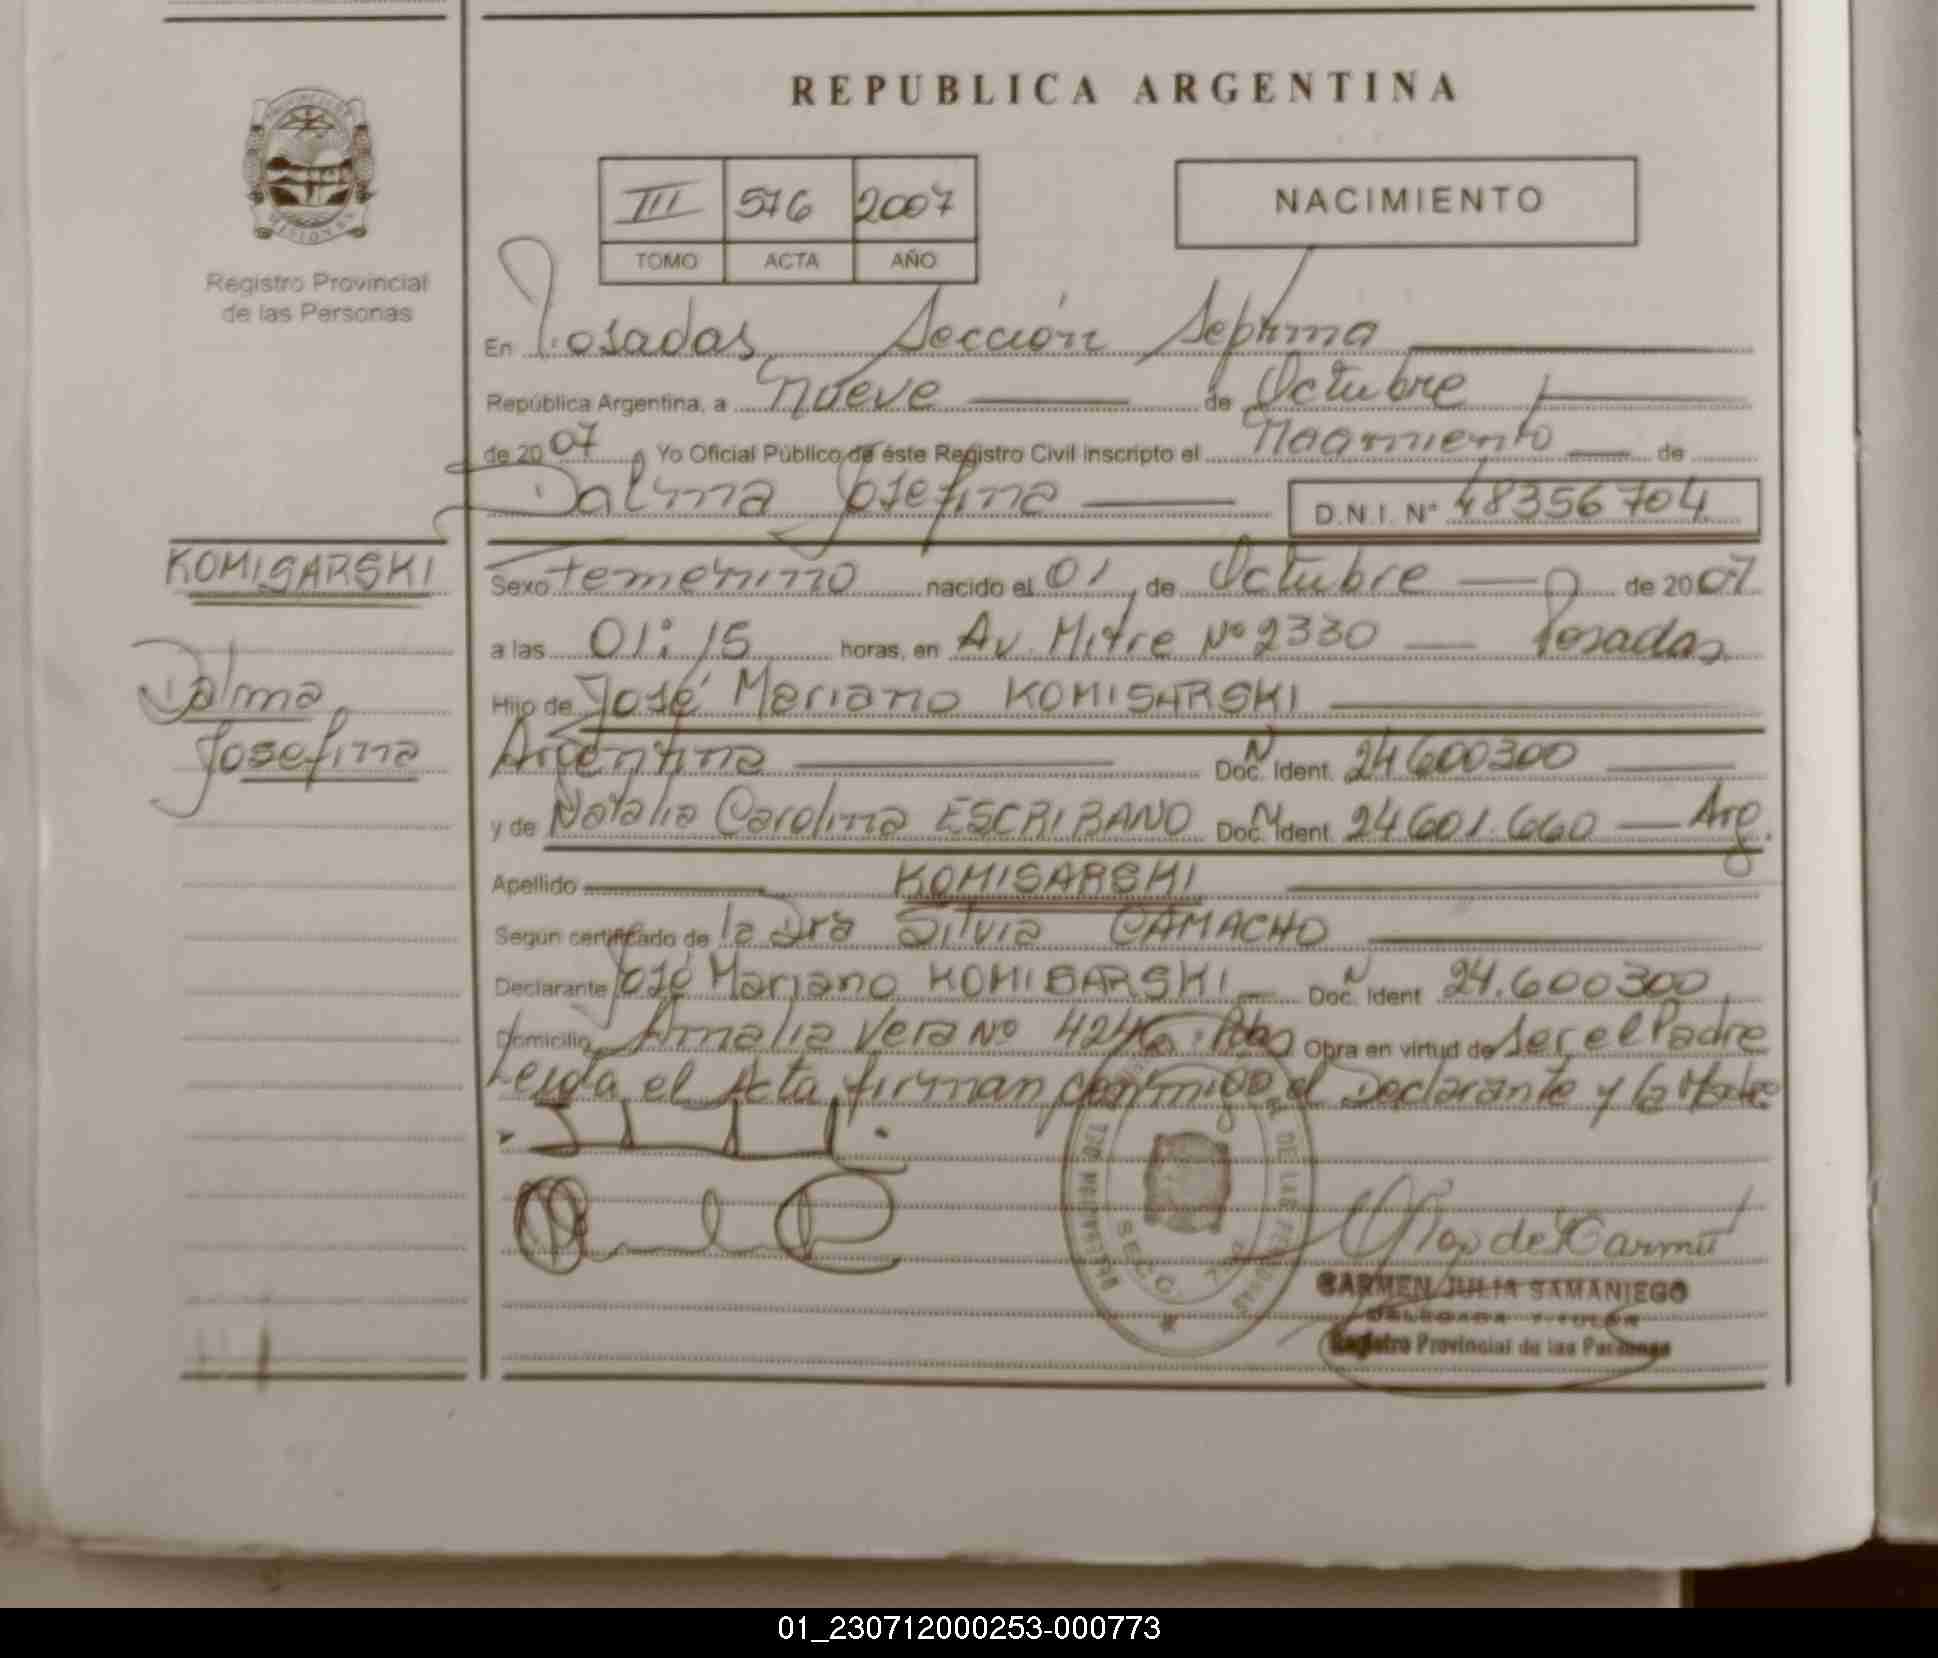 REPUBLICA ARGENTINA
III 576 2007
TOMO ACTA AÑO
NACIMIENTO
Registro Provincial
de las Personas
En Posadas, Sección Septima
República Argentina, a nueve de Octubre
de 2007 Yo Oficial Público de éste Registro Civil inscripto el Nacimiento de
Dalma Josefina D.N.I. Nº 48356704
KOMISARSKI
Dalma
Josefina
Sexo femenino nacido el 01 de Octubre de 2007
a las 01:15 horas, en Av. Mitre Nº 2330 Posadas
Hijo de José Mariano KOMISARSKI
Argentina Doc. Ident. 24600300
y de Natalia Carolina ESCRIBANO Doc. Ident. 24601.660 Arg.
Apellido KOMISARSKI
Segun certificado de la Dra Silvia CAMACHO
Declarante José Mariano KOMISARSKI Doc. Ident 24.600300
Domicilio Amalia Vera Nº Pdas Obra en virtud de ser el Padre
Leida el Acta firman conmigo el Declarante y la Madre
SECC. 7
CARMEN JULIA SAMANIEGO
DELEGADA TITULAR
Registro Provincial de las Personas
01_230712000253-000773